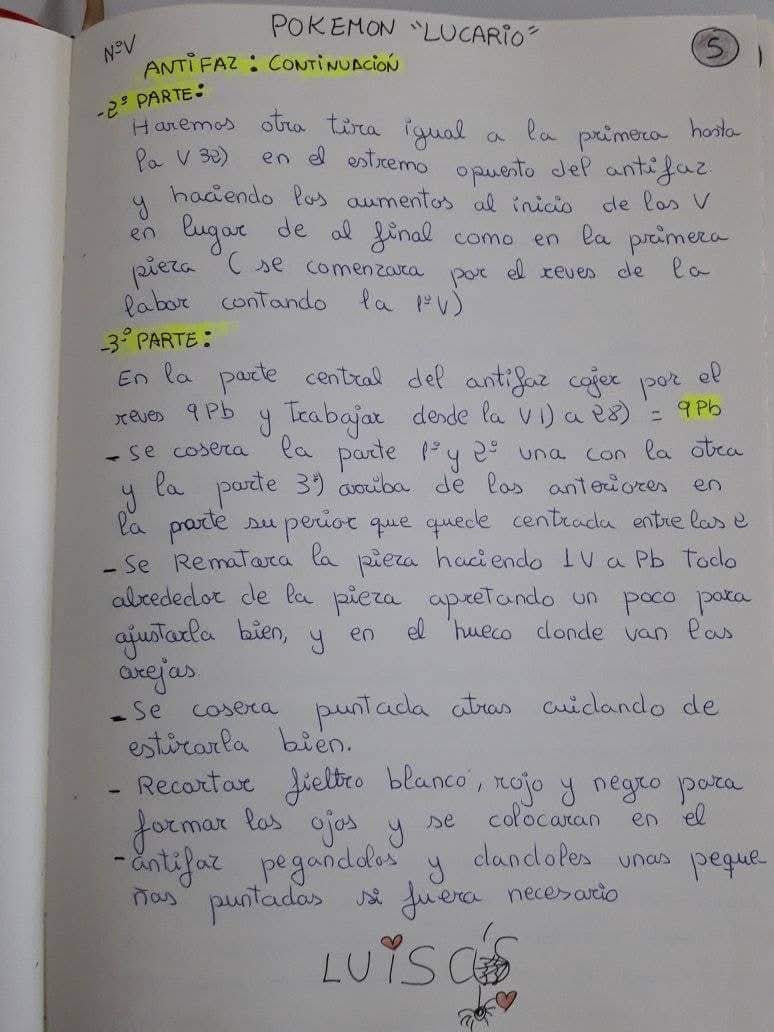 POKEMON "LUCARIO"
5
NºV
ANTIFAZ: CONTINUACIÓN
-2º PARTE:
Haremos otra tira igual a la primera hasta
la V 32) en el estremo opuesto del antifaz
y haciendo los aumentos al inicio de las V
en lugar de al final como en la primera
pieza (se comenzara por el reves de la
labor contando la 1ºV)
-3º PARTE:
En la parte central del antifaz cojer por el
reves 9Pb y trabajar desde la V1) a 28) = 9Pb
- Se cosera la parte 1º y 2º una con la otra
y la parte 3º) arriba de las anteriores en
la parte superior que quede centrada entre las e
- Se Rematara la pieza haciendo 1V a Pb Todo
alrededor de la pieza apretando un poco para
ajustarla bien, y en el hueco donde van las
orejas.
- Se cosera puntada atras cuidando de
estirarla bien.
- Recortar fieltro blanco, rojo y negro para
formar los ojos y se colocaran en el
- antifaz pegandolos y dandoles unas peque
ñas puntadas si fuera necesario
LUISA'S